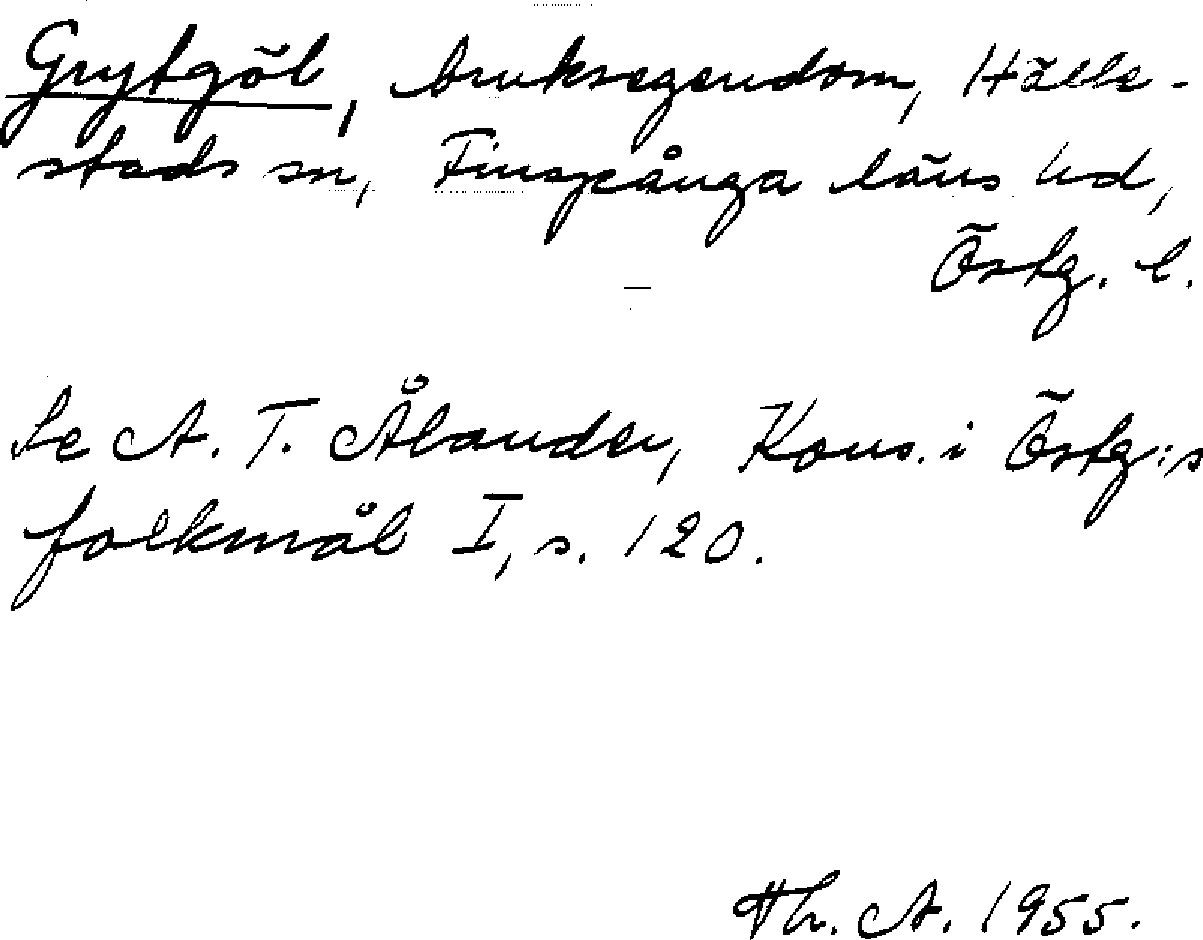 Grytgöl, bruksegendom, Hälle-
stads sn, Finspånga läns hd,
Östg. l.
Se A. T. Ålander, Kons. i Östg:s
folkmål I, s. 120.
Th. A. 1955.